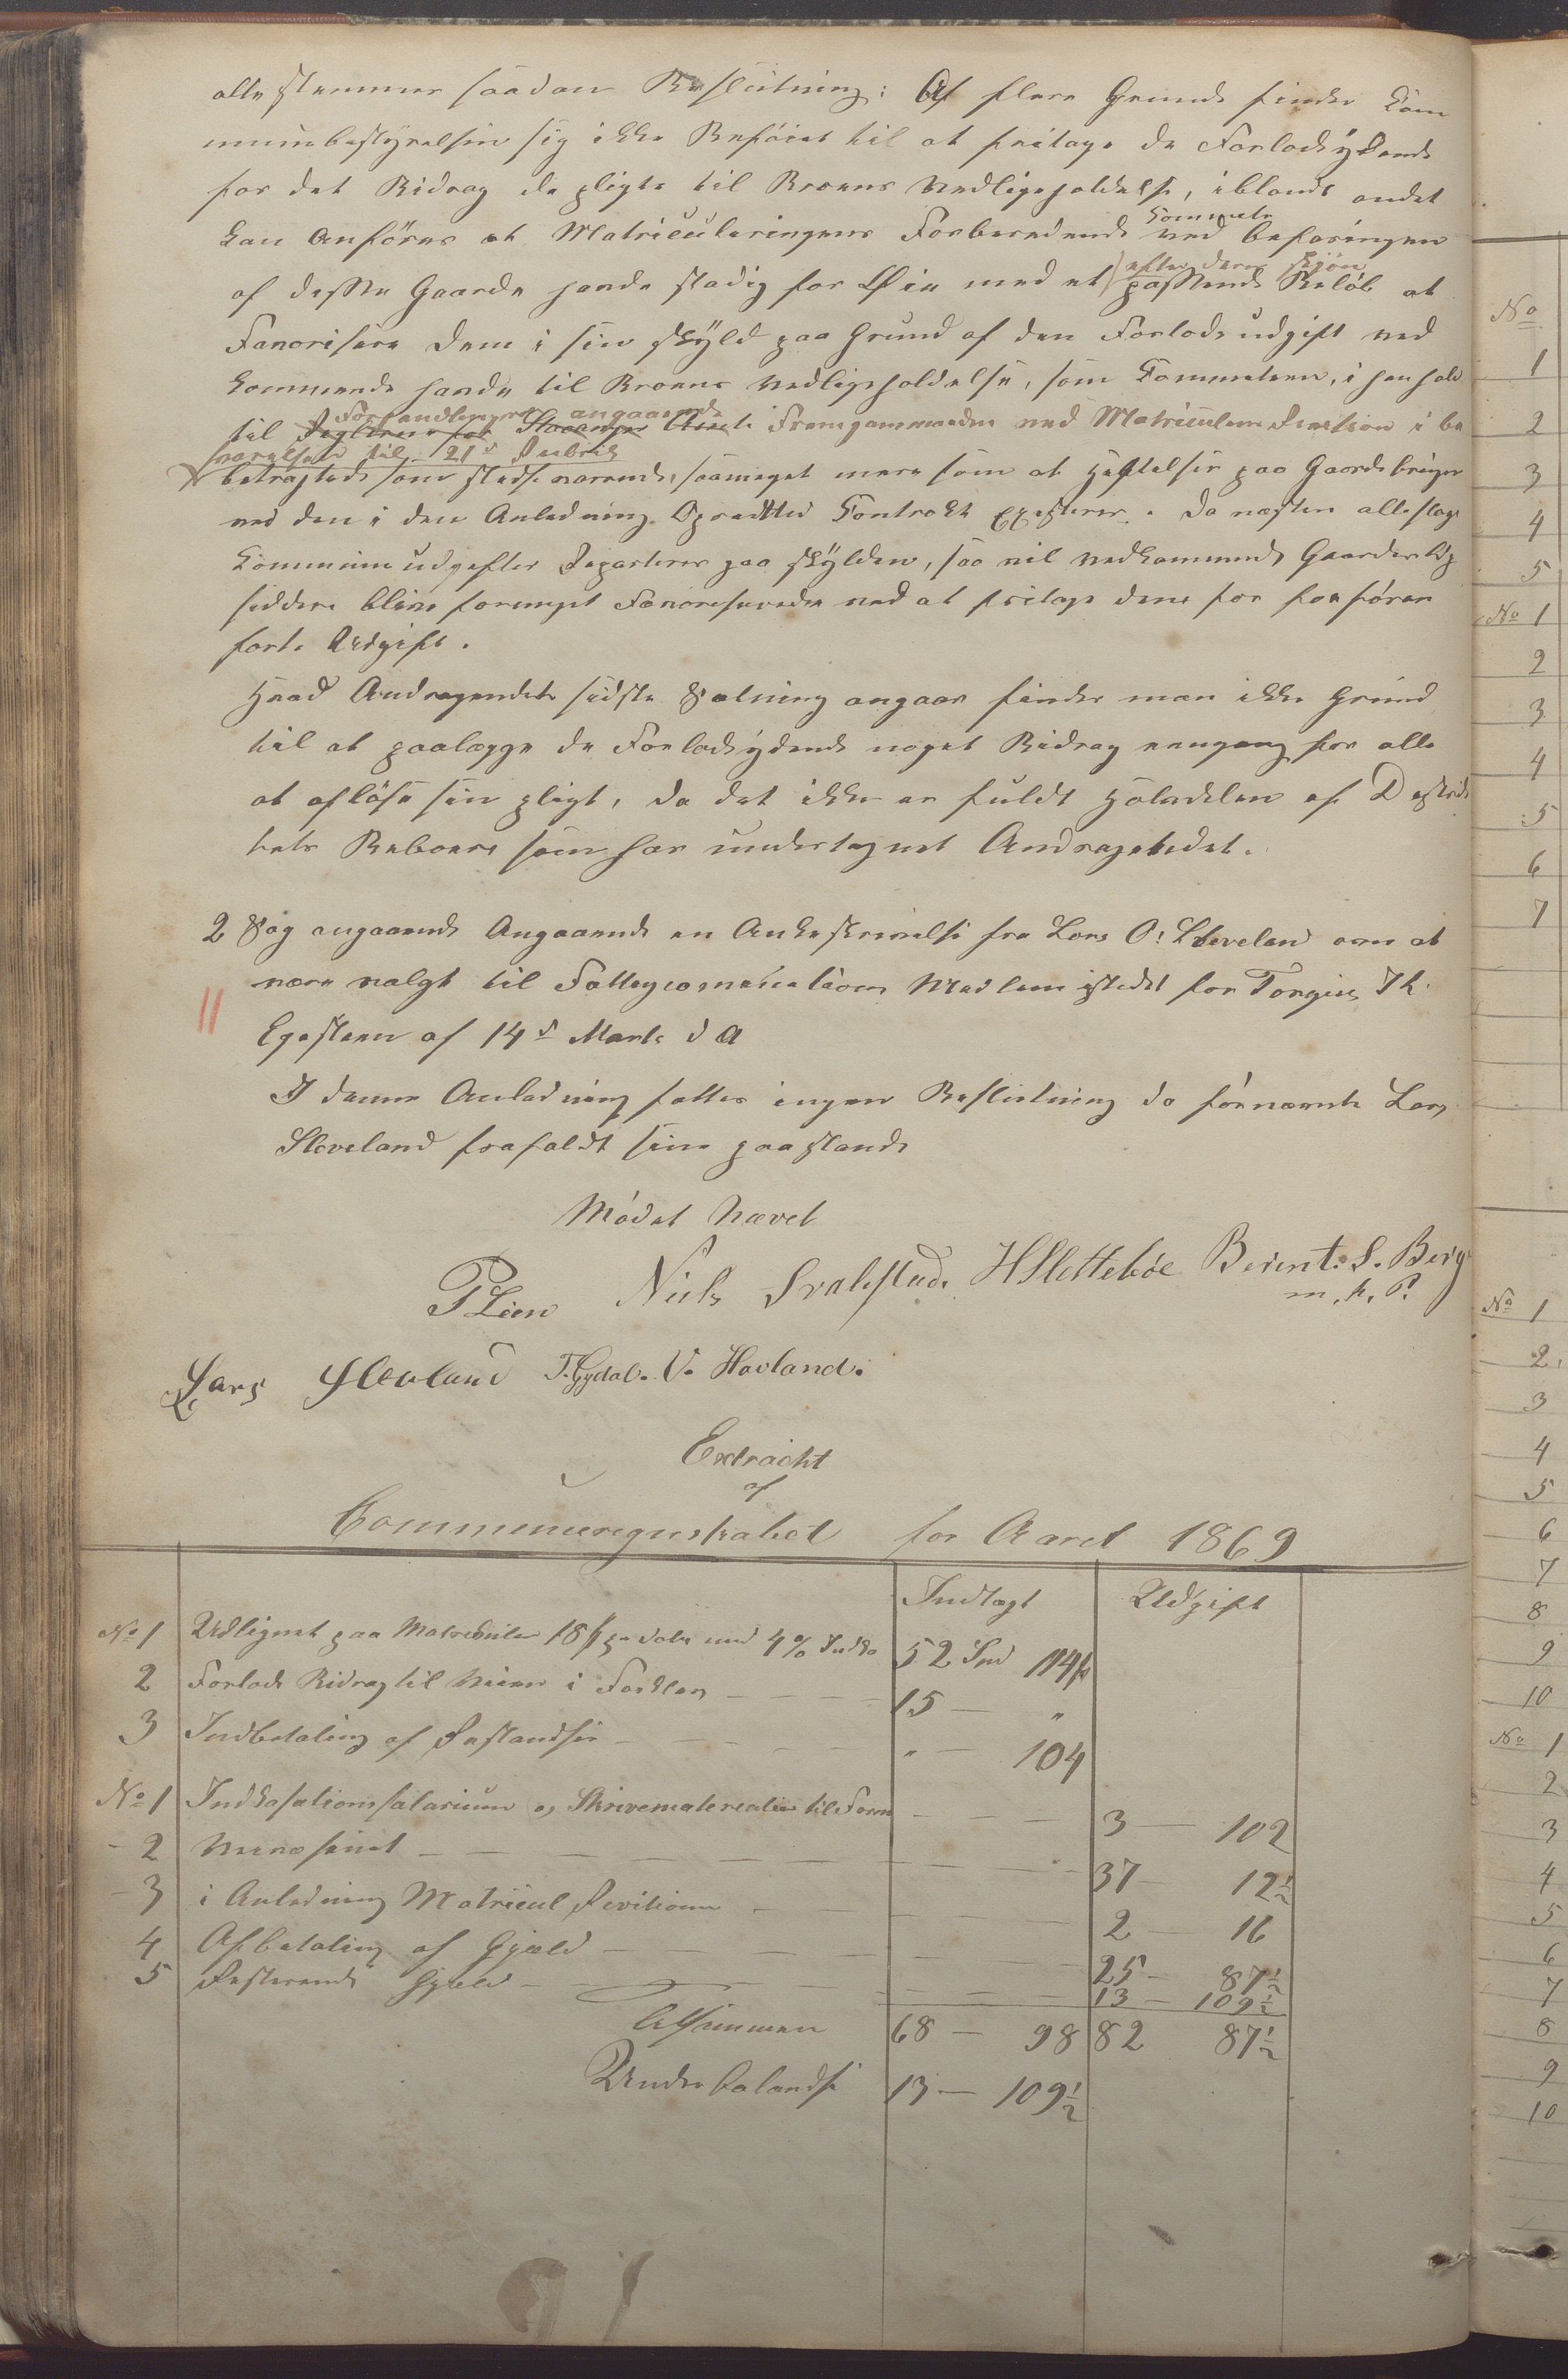 alle stemmer saadan Beslutning: Af flere Grunde finder Kom
munebestyrelsen sig ikke Beføiet til at fritage de Forlodsydende
for det Bidrag de pligte til Broens Vedligeholdelse, iblandt andet
kan Anføres at Matriculeringens Forberedende Commite ved befaringen
af disse Gaarde havde stadig for Øie med et efter deres skjøn passende Beløb at
Favorisere dem i sin skyld paa Grund af den Forlods udgift ved
kommende havde til Broens vedligeholdelse, som Commiteen, i henhold
til Forhandlingerne angaaende Fremgammaaden ved Matriculens Revition i be
varelsen til 21d Rubrik
betragtede som stedsevarende, saameget mere som at Heftelser paa Gaardsbruger
ved den i den Anledning Oprettet Contrakt Existerer. Da næsten alle slags
Kommuneudgifter Reparteres paa skylden, saa vil vedkommende Gaarders Op
siddere blive formeget Favoriserede ved at fritage dem for foranfør
førte Udgift.
Hvad Andragendets sidste Sætning angaar finder man ikke Grund
til at paalægge de Forlodsydende noget Bidrag engang for alle
at afløse sin pligt, da det ikke er fuldt Halvdelen af Destrik
tets Beboere som har undertegnet Andragendet.
2 Sag angaaende Angaaende en Ankeskrivelse fra Lars O. Sleveland om at
være valgt til Fattigcommissions Medlem istedet for Torgius Th.
Egesteen af 14d Marts d A
I denne Anledning fattes ingen Beslutning da fornævnte Lars
Sleveland frafaldt sin paastand
Mødet hævet
P Lien Niels Svalestad. H Slettebøe Berent. S. Berg
m. h. P.
Lars Sleveland T. Gydal. V. Havland.
Extracht
af
Communeregnskabet for Aaret 1869
Indtægt Udgift
No 1 Udlignet paa Matriculen 18 ß pr daler med 4% Indko 52 Spd 114 ß
2 Forlods Bidrag til Veien i Fodklan 15 — "
3 Indbetaling af Restandser " — 104
No 1 Indkasationssalarium og Skrivematerealier til Form 3 — 102
- 2 Veivæsenet 37 12½
- 3 i Anledning Matricul Revitionen 2 — 16
4 Afbetaling af Gjæld 25 — 87½
5 Resterende Gjæld 13 — 109½
Tilsammen 68 — 98 82 87½
Underbalandse 13 — 109½
No
1
2
3
4
5
No 1
2
3
4
5
6
7
No 1
2
3
4
5
6
7
8
9
10
No 1
2
3
4
5
6
7
8
9
10